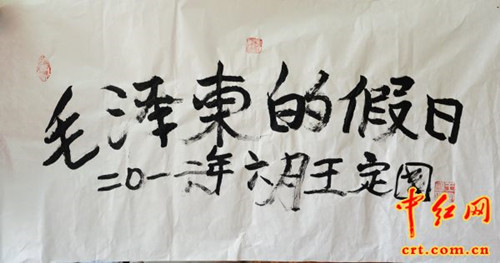 毛泽東的假日
二〇一六年六月王定國
中红网
crt.com.cn